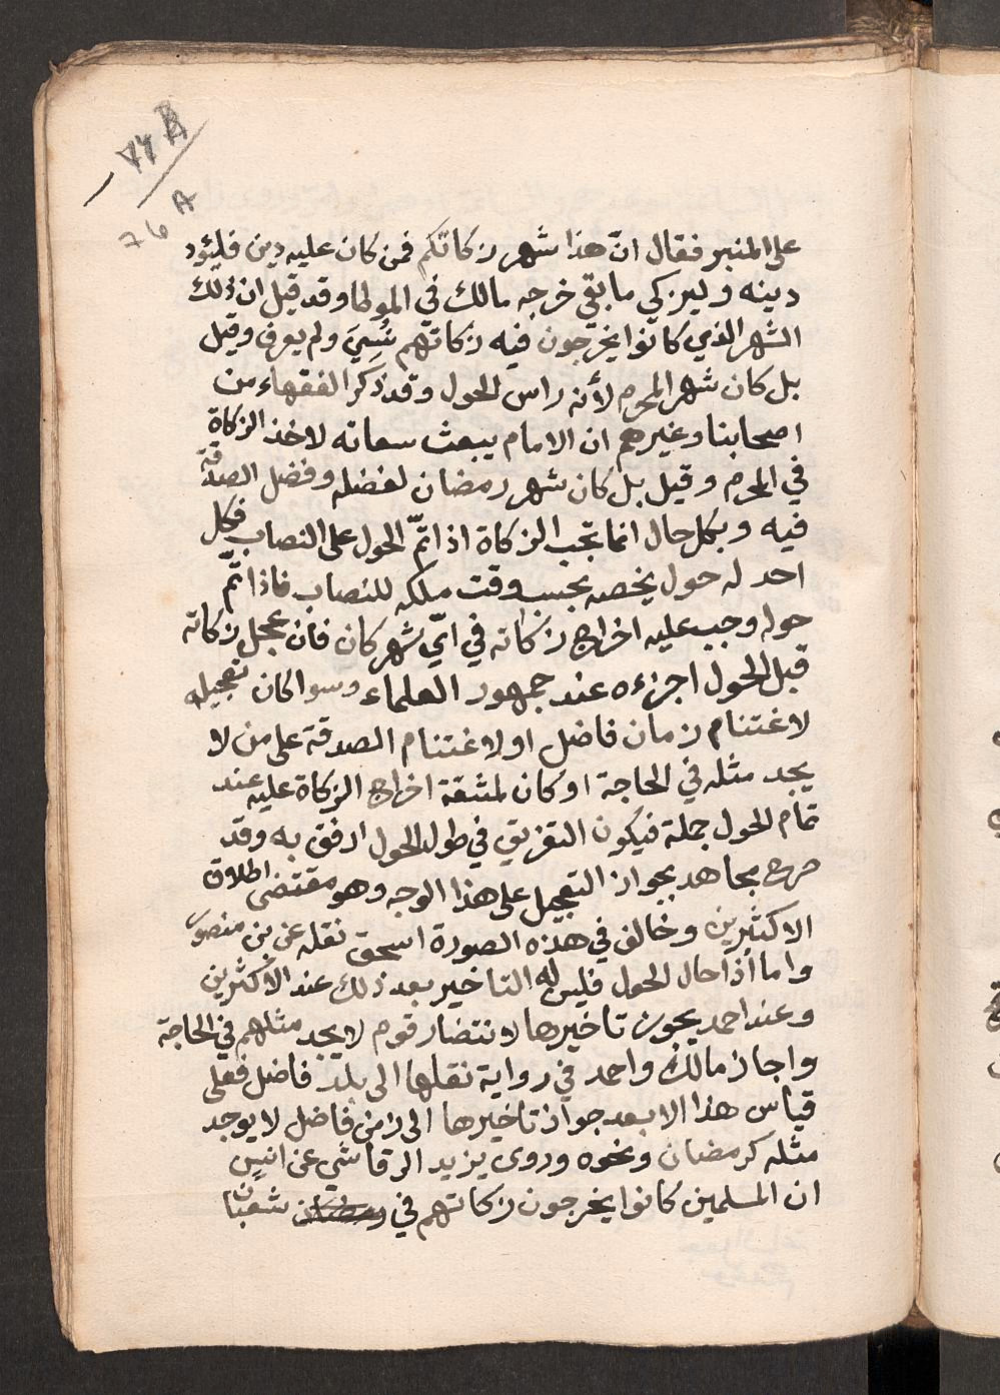 74 B
76 A
على المنبر فقال انّ هذا شهر زكاتكم فمن كان عليه دين فليؤد
دينه وليزكي ما بقي خرجه مالك في الموطا وقد قيل ان ذلك
الشهر الذي كانوا يخرجون فيه زكاتهم نُسِيَ ولم يعرف وقيل
بل كان شهر المحرم لأنه راس الحول وقد ذكر الفقهاء من
اصحابنا وغيرهم ان الامام يبعث سعاته لاخذ الزكاة
في المحرم وقيل بل كان شهر رمضان لفضله وفضل الصدقة
فيه وبكل حال انما تجب الزكاة اذا تمّ الحول على النصاب فكل
احد له حول يخصه بحسب وقت ملكه للنصاب فاذا تمّ
حوله وجب عليه اخراج زكاته في ايّ شهر كان فان عجل زكاته
قبل الحول اجزءه عند جمهور العلماء وسوا كان تعجيله
لاغتنام زمان فاضل او لاغتنام الصدقة على من لا
يجد مثله في الحاجة او كان لمشقة اخراج الزكاة عليه عند
تمام الحول جملة فيكون التفريق في طول الحول ارفق به وقد
صرح مجاهد بجواز التعجيل على هذا الوجه وهو مقتضى اطلاق
الاكثرين وخالف في هذه الصورة اسحق نقله عن بن منصور
واما اذا حال الحول فليس له التاخير بعد ذلك عند الاكثرين
وعند احمد يجوز تاخيرها لانتضار قوم لا يجد مثلهم في الحاجة
واجاز مالك واحمد في رواية نقلها الى بلد فاضل فعلى
قياس هذا لا بعد جواز تاخيرها الى زمن فاضل لا يوجد
مثله كرمضان ونحوه وروى يزيد الرقاشي عن انس
ان المسلمين كانوا يخرجون زكاتهم في رمضان شعبان